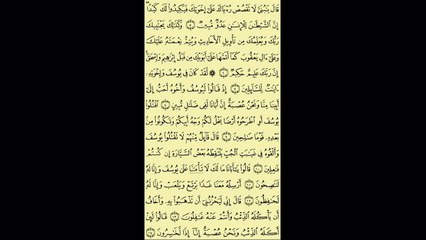 قَالَ يَٰبُنَىَّ لَا تَقْصُصْ رُءْيَاكَ عَلَىٰٓ إِخْوَتِكَ فَيَكِيدُوا۟ لَكَ كَيْدًا
إِنَّ ٱلشَّيْطَٰنَ لِلْإِنسَٰنِ عَدُوٌّ مُّبِينٌ ۝٥ وَكَذَٰلِكَ يَجْتَبِيكَ
رَبُّكَ وَيُعَلِّمُكَ مِن تَأْوِيلِ ٱلْأَحَادِيثِ وَيُتِمُّ نِعْمَتَهُۥ عَلَيْكَ
وَعَلَىٰٓ ءَالِ يَعْقُوبَ كَمَآ أَتَمَّهَا عَلَىٰٓ أَبَوَيْكَ مِن قَبْلُ إِبْرَٰهِيمَ وَإِسْحَٰقَ
إِنَّ رَبَّكَ عَلِيمٌ حَكِيمٌ ۝٦ ۞ لَّقَدْ كَانَ فِى يُوسُفَ وَإِخْوَتِهِۦٓ
ءَايَٰتٌ لِّلسَّآئِلِينَ ۝٧ إِذْ قَالُوا۟ لَيُوسُفُ وَأَخُوهُ أَحَبُّ إِلَىٰٓ
أَبِينَا مِنَّا وَنَحْنُ عُصْبَةٌ إِنَّ أَبَانَا لَفِى ضَلَٰلٍ مُّبِينٍ ۝٨ ٱقْتُلُوا۟
يُوسُفَ أَوِ ٱطْرَحُوهُ أَرْضًا يَخْلُ لَكُمْ وَجْهُ أَبِيكُمْ وَتَكُونُوا۟ مِنۢ
بَعْدِهِۦ قَوْمًا صَٰلِحِينَ ۝٩ قَالَ قَآئِلٌ مِّنْهُمْ لَا تَقْتُلُوا۟ يُوسُفَ
وَأَلْقُوهُ فِى غَيَٰبَتِ ٱلْجُبِّ يَلْتَقِطْهُ بَعْضُ ٱلسَّيَّارَةِ إِن كُنتُمْ
فَٰعِلِينَ ۝١٠ قَالُوا۟ يَٰٓأَبَانَا مَا لَكَ لَا تَأْمَ۫نَّا عَلَىٰ يُوسُفَ وَإِنَّا لَهُۥ
لَنَٰصِحُونَ ۝١١ أَرْسِلْهُ مَعَنَا غَدًا يَرْتَعْ وَيَلْعَبْ وَإِنَّا لَهُۥ
لَحَٰفِظُونَ ۝١٢ قَالَ إِنِّى لَيَحْزُنُنِىٓ أَن تَذْهَبُوا۟ بِهِۦ وَأَخَافُ
أَن يَأْكُلَهُ ٱلذِّئْبُ وَأَنتُمْ عَنْهُ غَٰفِلُونَ ۝١٣ قَالُوا۟ لَئِنْ
أَكَلَهُ ٱلذِّئْبُ وَنَحْنُ عُصْبَةٌ إِنَّآ إِذًا لَّخَٰسِرُونَ ۝١٤